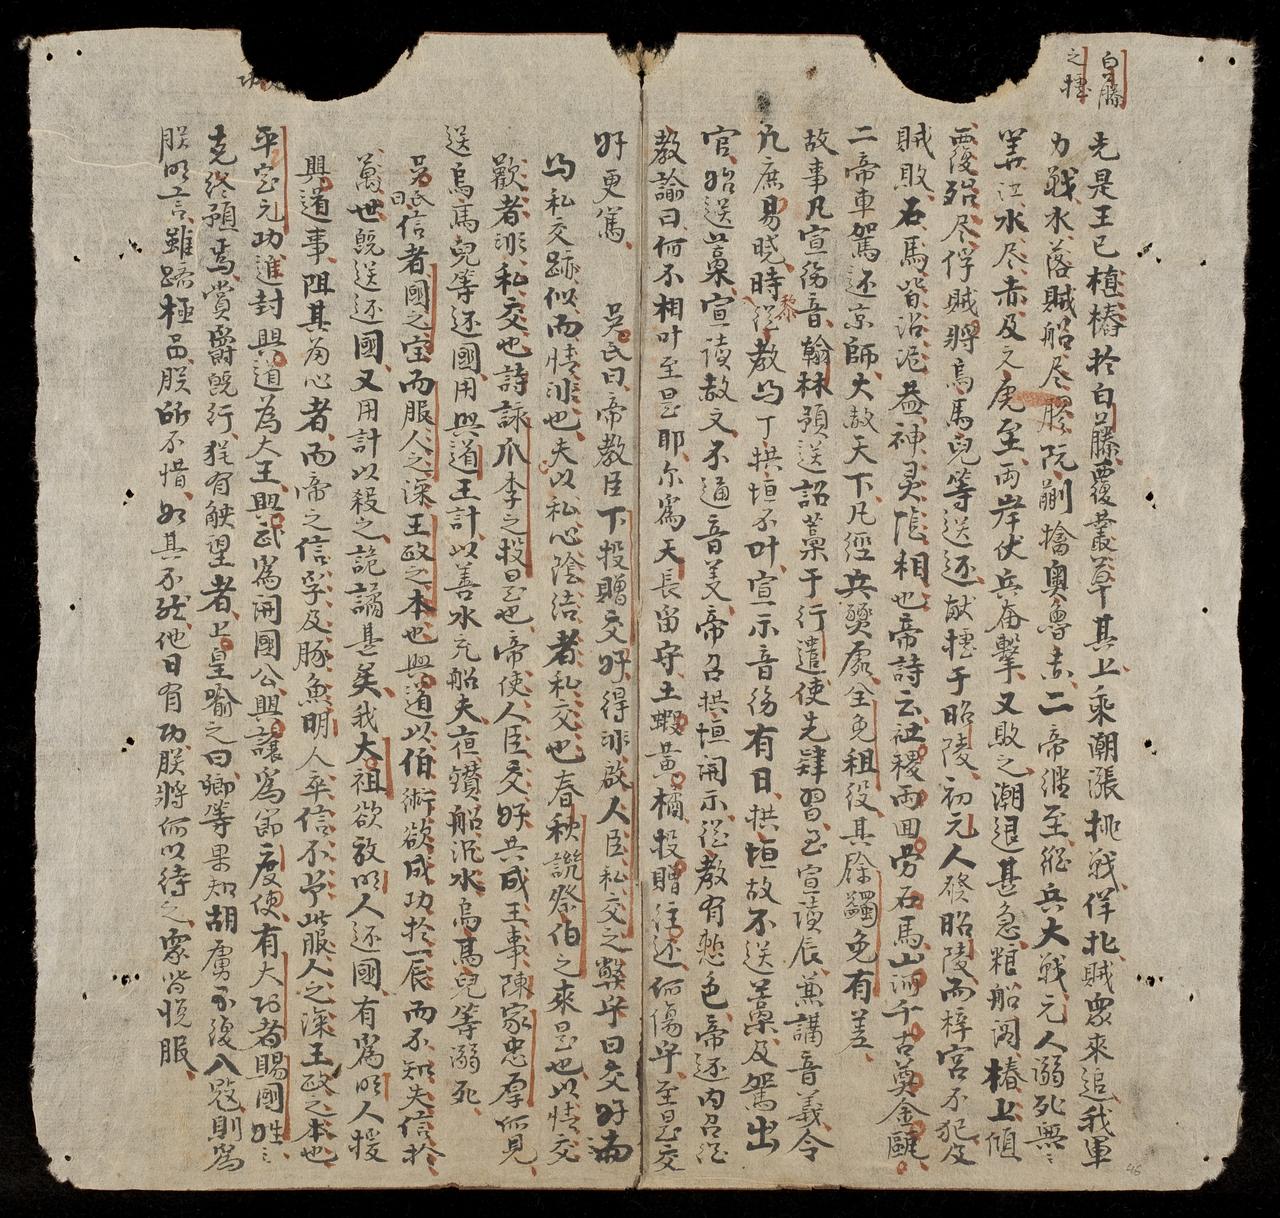 白藤
之捷
先是王已植樁於白藤覆叢草其上乘潮漲挑戰佯北賊衆來追我軍
力戰水落賊船尽膠阮蒯擒奧魯赤二帝継至縱兵大戰元人溺死無〻
筭江水尽赤及文虎至兩岸伏兵奮擊又敗之潮退甚急粮船閣樁上傾
覆殆尽俘賊將烏馬兒等送还献捷于昭陵初元人發昭陵而梓宮不犯及
賊敗石馬皆沾泥盖神灵隂相也帝詩云社稷兩囬勞石馬山河千古奠金甌
二帝車駕还京師大赦天下凡經兵燹處全免租役其除蠲免有差
故事凡宣徳音翰林預送詔藁于行遣使先肄習至宣讀辰兼講音義令
凡庶易曉時
黎
從教与丁拱垣不叶宣示音徳有日拱垣故不送藁及駕出
官始送藁宣讀赦文不通音义帝召拱垣開示從教有慙色帝还内召從
教諭曰何不相叶至是耶尔為天長留守土蝦黃橘投贈徃还何傷乎至是交
好更篤　吳氏曰帝教臣下投贈交好得非啟人臣私交之弊乎曰交好而
与私交跡似而情非也夫以私心隂结者私交也春秋譏祭伯之來是也以情交
歡者非私交也詩詠爪李之投是也帝使人臣交好共成王事陳家忠厚何見
送烏馬兒等还國用興道王計以善水充船夫夜鑚船沉水烏馬兒等溺死
吳氏
曰
信者國之宝而服人之深王政之本也興道以伯術欲成功扵一辰而不知失信扵
萬世既送还國又用計以殺之詭譎甚矣我太祖欲放明人还國有為明人援
興道事阻其為心者而帝之信孚及豚魚明人卒信不兮此服人之深王政之本也
平定元功進封興道為大王興武為開國公興讓為節度使有大功者賜國姓〻
克終預焉賞爵既行犹有觖望者上皇喻之曰卿等果知胡虜不復入冦則為
朕明言雖躋極品朕所不惜如其不然他日有功朕將何以待之衆皆悅服